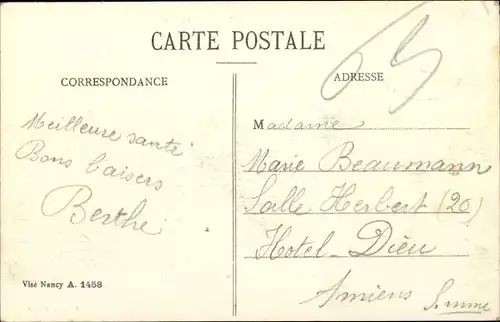 CARTE POSTALE
CORRESPONDANCE
ADRESSE
Meilleure santé
Bons baisers
Berthe
Visé Nancy A. 1458
Madame
Marie Beaumann
Salle Herbert (20)
Hotel-Dieu
Amiens Somme